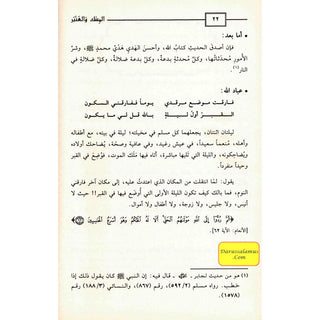 ٢٢
أما بعد:
فإن أصدق الحديث كتابُ الله، وأحسنَ الهَدْيِ هَدْيُ محمدٍ ﷺ، وشرَّ
الأمورِ مُحدَثاتُها، وكلُّ مُحدثةٍ بدعةٌ، وكلَّ بدعةٍ ضلالةٌ، وكلَّ ضلالةٍ في
النار(١).
عباد الله:
فارقت موضع مرقدي يوماً ففارقني السكون
القبر أول ليلة بالله قل لي ما يكون
ليلتان اثنتان، يجعلهما كل مسلم في مخيلته؛ ليلة في بيته، مع أطفاله
وأهله، منعماً سعيداً، في عيش رغيد، وفي عافية وصحة، يُضاحك أولاده
ويُضاحكونه، والليلة التي تليها مباشرة، أتاه فيها مَلَك الموت، فوُضع في القبر
وحيداً منفرداً.
يقول: لمّا انتقلت من المكان الذي اعتدتُ عليه، إلى مكان آخر فارقني
النوم، فما بالك كيف تكون الليلة الأولى التي أُوضع فيها في القبر!! حيث لا
أنيس، ولا جليس، ولا زوجة، ولا أطفال ولا أموال.
﴿ثُمَّ رُدُّوا إِلَى اللَّهِ مَوْلَاهُمُ الْحَقِّ أَلَا لَهُ الْحُكْمُ وَهُوَ أَسْرَعُ الْحَاسِبِينَ﴾
[الأنعام: الآية ٦٢].
Darussalamus
.Com
(١) هو من حديث لجابر، قال فيه: إن النبي ﷺ كان يقول ذلك إذا
خطب. رواه مسلم (٥٩٢/٢) رقم (٨٦٧)، والنسائي (١٨٨/٣) رقم
(١٥٧٨)